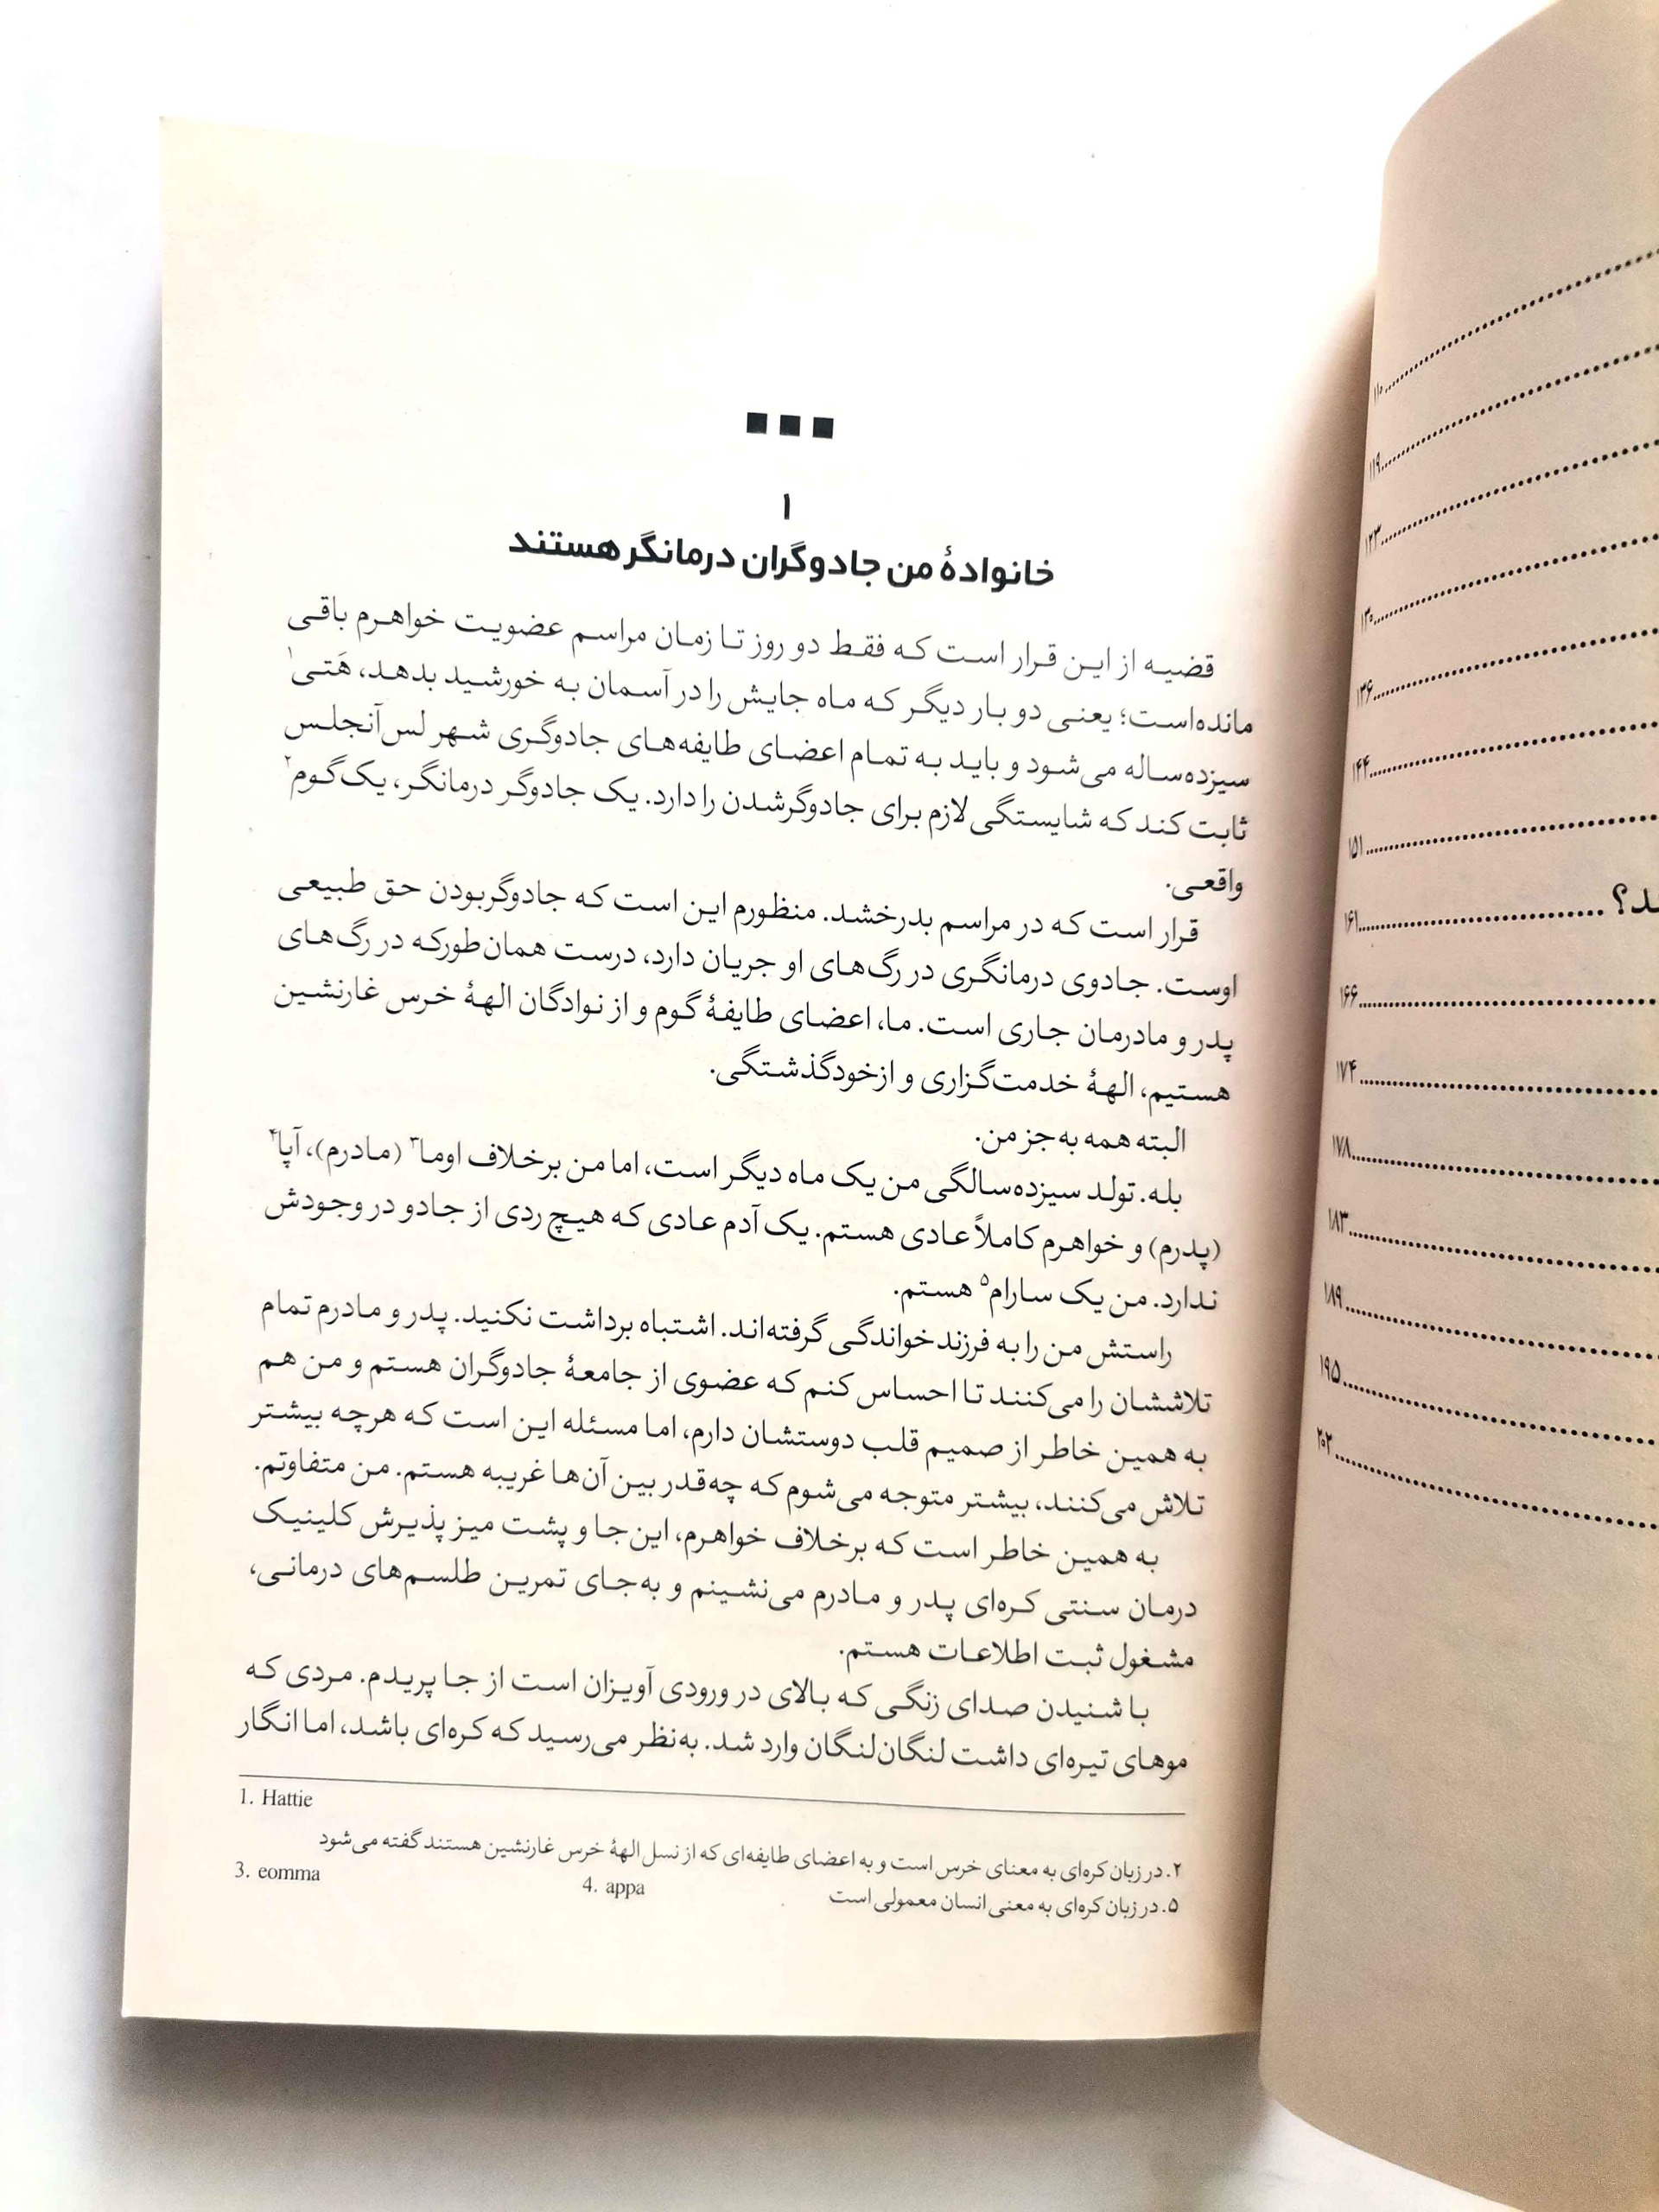 ۱
خانوادهٔ من جادوگران درمانگر هستند
قضیه از این قرار است که فقط دو روز تا زمان مراسم عضویت خواهرم باقی
مانده‌است؛ یعنی دو بار دیگر که ماه جایش را در آسمان به خورشید بدهد، هَتی۱
سیزده‌ساله می‌شود و باید به تمام اعضای طایفه‌های جادوگری شهر لس‌آنجلس
ثابت کند که شایستگی لازم برای جادوگرشدن را دارد. یک جادوگر درمانگر، یک گوم۲
واقعی.
قرار است که در مراسم بدرخشد. منظورم این است که جادوگربودن حق طبیعی
اوست. جادوی درمانگری در رگ‌های او جریان دارد، درست همان‌طورکه در رگ‌های
پدر و مادرمان جاری است. ما، اعضای طایفهٔ گوم و از نوادگان الههٔ خرس غارنشین
هستیم، الههٔ خدمت‌گزاری و ازخودگذشتگی.
البته همه به‌جز من.
بله. تولد سیزده‌سالگی من یک ماه دیگر است، اما من برخلاف اوما۳ (مادرم)، آپا۴
(پدرم) و خواهرم کاملاً عادی هستم. یک آدم عادی که هیچ ردی از جادو در وجودش
ندارد. من یک سارام۵ هستم.
راستش من را به فرزندخواندگی گرفته‌اند. اشتباه برداشت نکنید. پدر و مادرم تمام
تلاششان را می‌کنند تا احساس کنم که عضوی از جامعهٔ جادوگران هستم و من هم
به همین خاطر از صمیم قلب دوستشان دارم، اما مسئله این است که هرچه بیشتر
تلاش می‌کنند، بیشتر متوجه می‌شوم که چه‌قدر بین آن‌ها غریبه هستم. من متفاوتم.
به همین خاطر است که برخلاف خواهرم، این‌جا و پشت میز پذیرش کلینیک
درمان سنتی کره‌ای پدر و مادرم می‌نشینم و به‌جای تمرین طلسم‌های درمانی،
مشغول ثبت اطلاعات هستم.
با شنیدن صدای زنگی که بالای در ورودی آویزان است از جا پریدم. مردی که
موهای تیره‌ای داشت لنگان‌لنگان وارد شد. به‌نظر می‌رسید که کره‌ای باشد، اما انگار
1. Hattie
۲. در زبان کره‌ای به معنای خرس است و به اعضای طایفه‌ای که از نسل الههٔ خرس غارنشین هستند گفته می‌شود
3. eomma 4. appa
۵. در زبان کره‌ای به معنی انسان معمولی است
۱۱۰
۱۱۹
۱۲۳
۱۳۰
۱۳۶
۱۴۴
۱۵۱
۱۶۱
۱۶۶
۱۷۴
۱۷۸
۱۸۳
۱۸۹
۱۹۵
۲۰۲